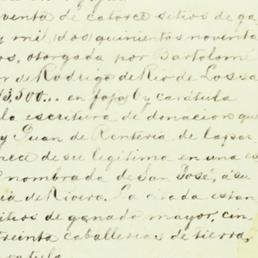 venta de catorce sitios de ga
y mil dos quinientos noventa
os, otorgada por Bartolomé
r de Rodrigo de Rio de Lossa
3,500... en foja 1, carátula
la escritura de donacion que
y Juan de Renteria, de las
nece de su legitima en una es
nombrada de San José, á su
ia de Rivera. La citada estan
itios de ganado mayor, cin
treinta caballerias de tierra,
ratula